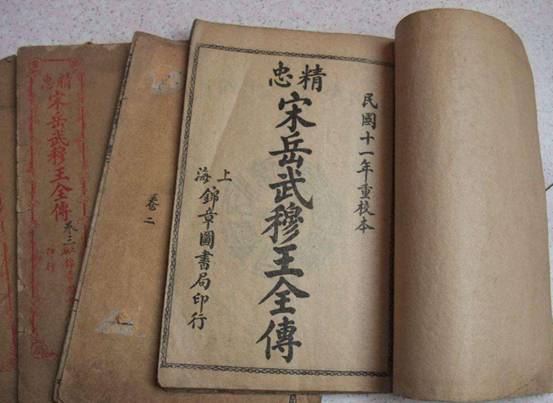 民國十一年重校本
精忠
宋岳武穆王全傳
上海
錦章圖書局印行
卷二
精忠
宋岳武穆王全傳
卷三
印行